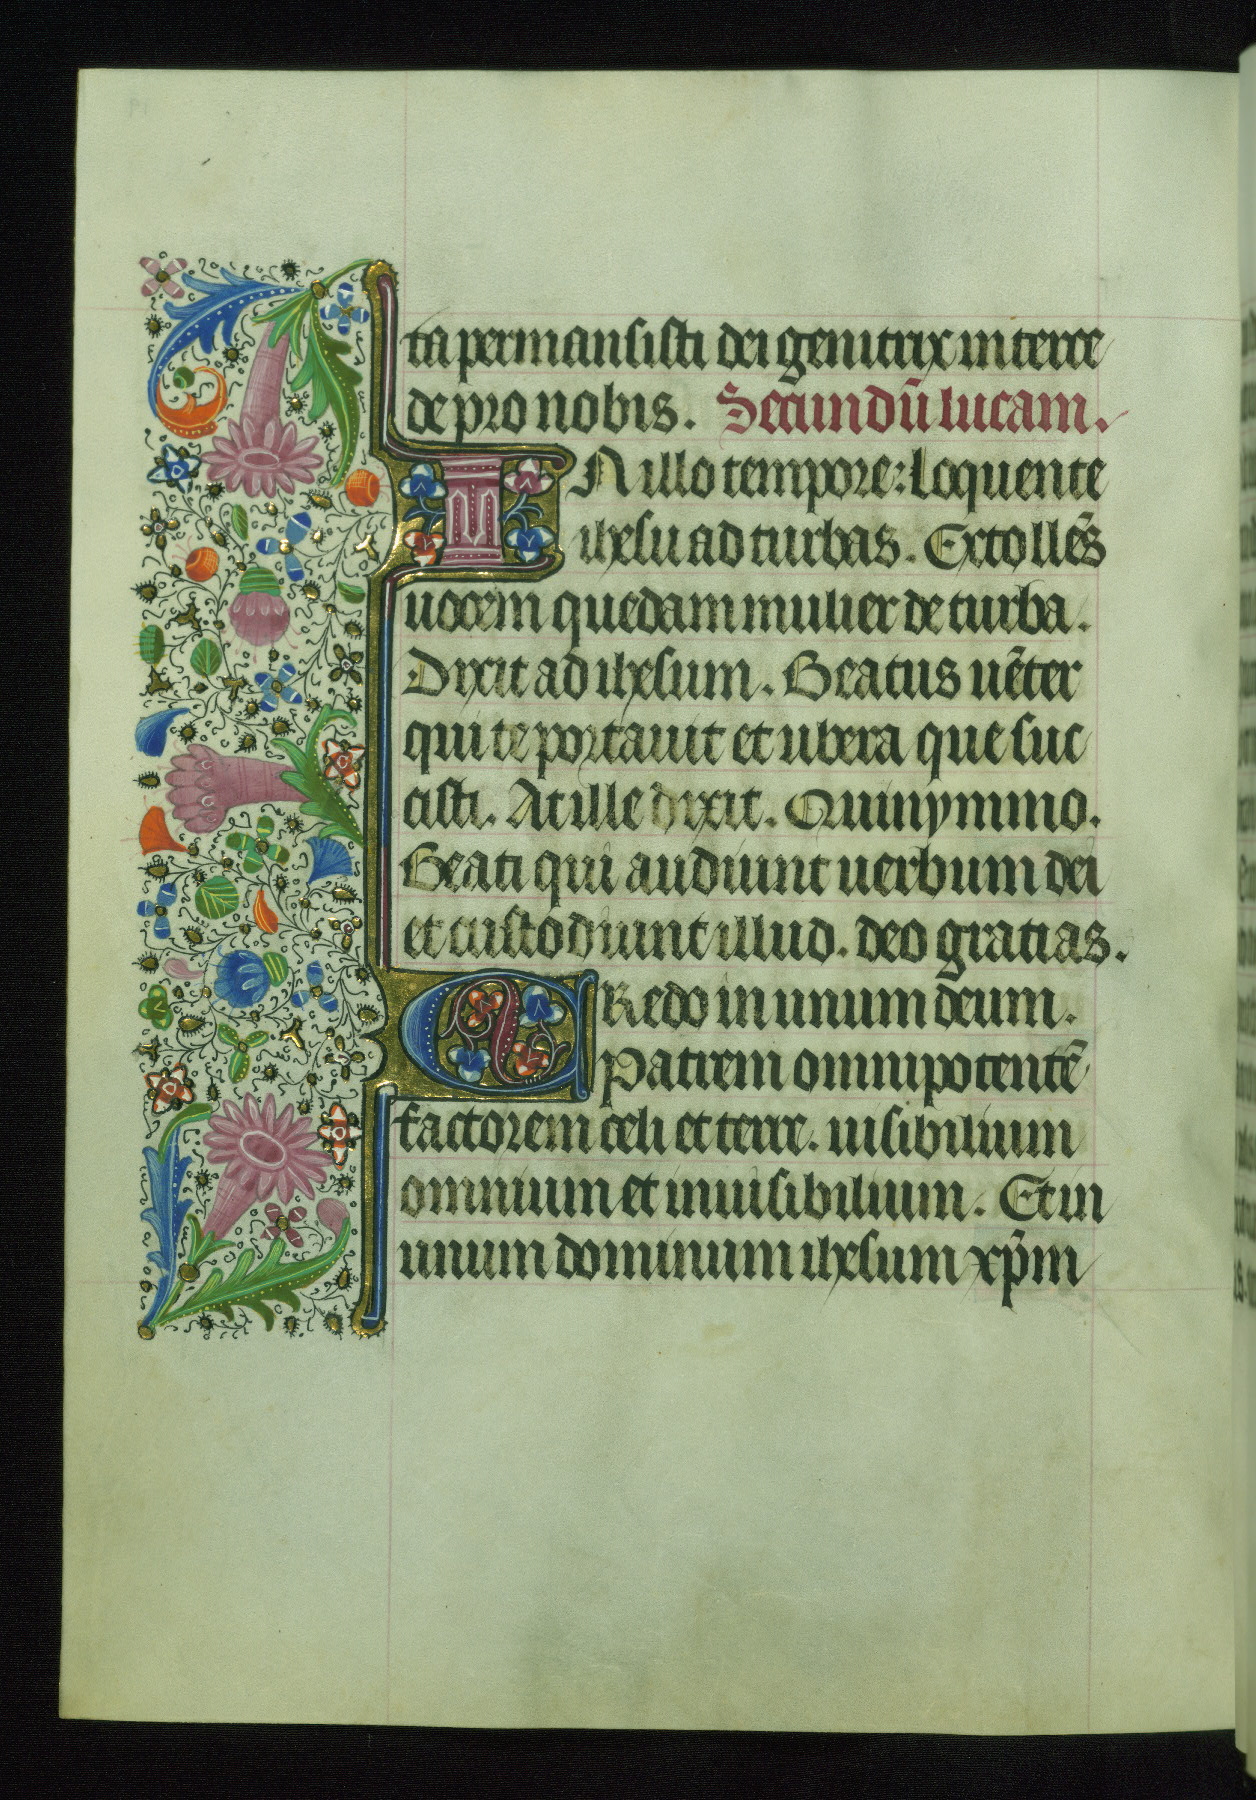 ta permansisti dei genitrix in terce
de pro nobis. Secundū lucam.
IN illo tempore: loquente
ihesu ad turbas. Extollēs
uocem quedam mulier de turba.
Dixit ad ihesum. Beatus uēter
qui te portauit et ubera que suc
cisti. At ille dixit. Quinymmo.
Beati qui audiunt uerbum dei
et custodiunt illud. deo gratias.
CRedo in unum deum.
Patrem omnipotentē
factorem celi et terre. uisibilium
omnium et inuisibilium. Et in
unum dominum ihesum xp̄m